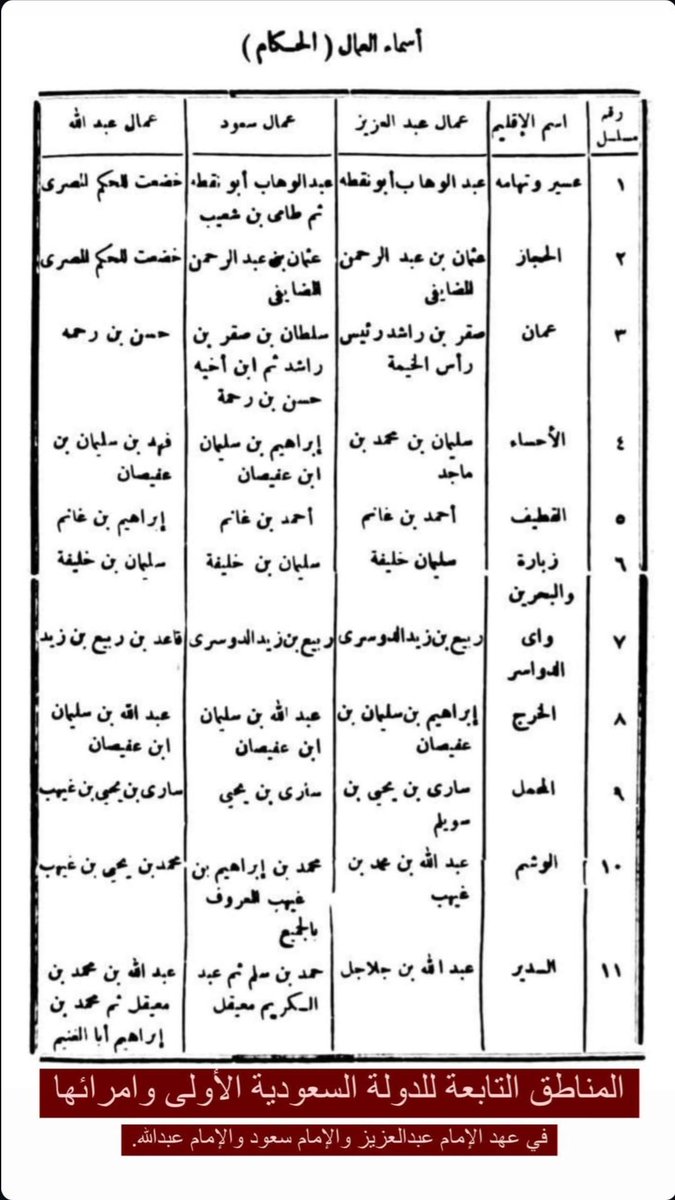 أسماء العمال ( الحكام )
رقم مسلسل | اسم الإقليم | عمال عبد العزيز | عمال سعود | عمال عبد الله
١ | عسير وتهامه | عبد الوهاب أبو نقطه | عبد الوهاب أبو نقطه ثم طامى بن شعيب | خضعت للحكم المصرى
٢ | الحجاز | عثمان بن عبد الرحمن المضايفى | عثمان بن عبد الرحمن المضايفى | خضعت للحكم المصرى
٣ | عمان | صقر بن راشد رئيس رأس الخيمة | سلطان بن صقر بن راشد ثم ابن أخيه حسن بن رحمة | حسن بن رحمه
٤ | الأحساء | سليمان بن محمد بن ماجد | إبراهيم بن سليمان ابن عفيصان | فهد بن سليمان بن عفيصان
٥ | القطيف | أحمد بن غانم | أحمد بن غانم | إبراهيم بن غانم
٦ | زبارة والبحرين | سليمان خليفة | سليمان بن خليفة | سليمان بن خليفة
٧ | واى الدواسر | ربيع بن زيد الدوسرى | ربيع بن زيد الدوسرى | قاعد بن ربيع بن زيد
٨ | الخرج | إبراهيم بن سليمان بن عفيصان | عبد الله بن سليمان ابن عفيصان | عبد الله بن سليمان ابن عفيصان
٩ | المحمل | سارى بن يحيى بن سويلم | سارى بن يحيى | سارى بن يحيى بن غيهب
١٠ | الوشم | عبد الله بن محمد بن غيهب | محمد بن إبراهيم بن غيهب المعروف بالجميع | محمد بن يحيى بن غيهب
١١ | السدير | عبد الله بن جلاجل | حمد بن سلم ثم عبد الكريم معيقل | عبد الله بن محمد بن معيقل ثم محمد بن إبراهيم أبا الغنيم
المناطق التابعة للدولة السعودية الأولى وامرائها
في عهد الإمام عبدالعزيز والإمام سعود والإمام عبدالله.